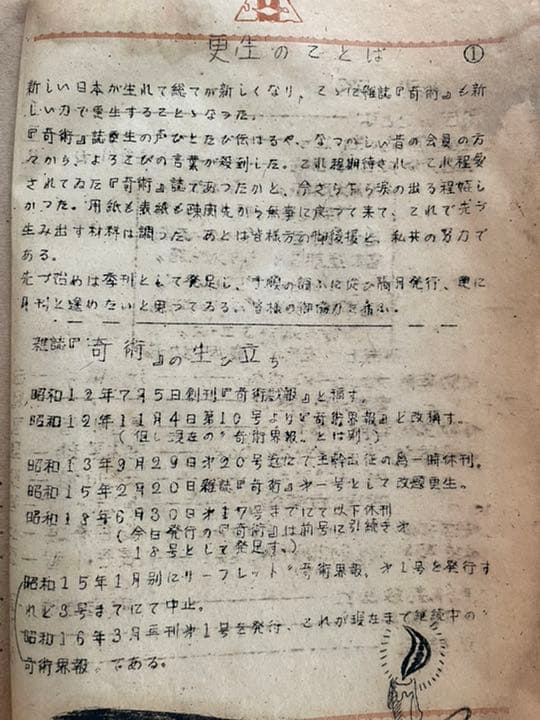 更生のことば ①
新しい日本が生れて総てが新しくなり、こゝに雑誌『奇術』も新
しい力で更生することゝなった。
『奇術』誌更生の声ひとたび伝はるや、なつかしい昔の会員の方
々から、よろこびの言葉が殺到した。これ程期待され、これ程愛
されてゐた『奇術』誌であつたかと、今さら乍ら涙の出る程嬉し
かつた。用紙も表紙も疎開先から無事に戻って来て、これで先づ
生み出す材料は調った。あとは皆様方の御後援と、私共の努力で
ある。
先づ始めは季刊として発足し、手順の調ふに従ひ隔月発行、更に
月刊と進めたいと思ってゐる。皆様の御協力を願ふ。
雑誌『奇術』の生ひ立ち
昭和12年7月5日創刊『奇術時報』と称す。
昭和12年11月4日第10号より『奇術界報』と改称す。
(但し現在の“奇術界報„とは別)
昭和13年9月29日才20号迄にて主幹出征の為一時休刊。
昭和15年2月20日雑誌『奇術』才一号として改題更生。
昭和18年6月30日才17号までにて以下休刊
(今日発行の『奇術』は前号に引続き才
18号として発足す。)
昭和15年1月別にリーフレット“奇術界報„才1号を発行す
れど3号までにて中止。
昭和16年3月再刊才1号を発行、これが現在まで継続中の“
奇術界報„である。